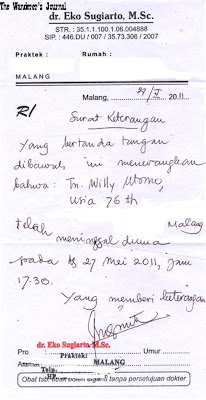 The Wanderer's Journal
dr. Eko Sugiarto, M.Sc.
STR.: 35.1.1.100.1.06.004888
SIP.: 446.DU / 007 / 35.73.306 / 2007
Praktek : Rumah :
MALANG
Malang, 29/5 2011
R/
Surat Keterangan
Yang bertanda tangan
dibawah ini menerangkan
bahwa: Tn. Willy Utomo,
Usia 76 th
Malang
telah meninggal dunia
pada tg 27 Mei 2011, jam
17.30.
Yang memberi keterangan
dr. Eko Sugiarto M.Sc.
Pro : Umur
Praktek:
Alamat MALANG
Telp.
HP.
Obat tsb. tidak boleh diganti tanpa persetujuan dokter